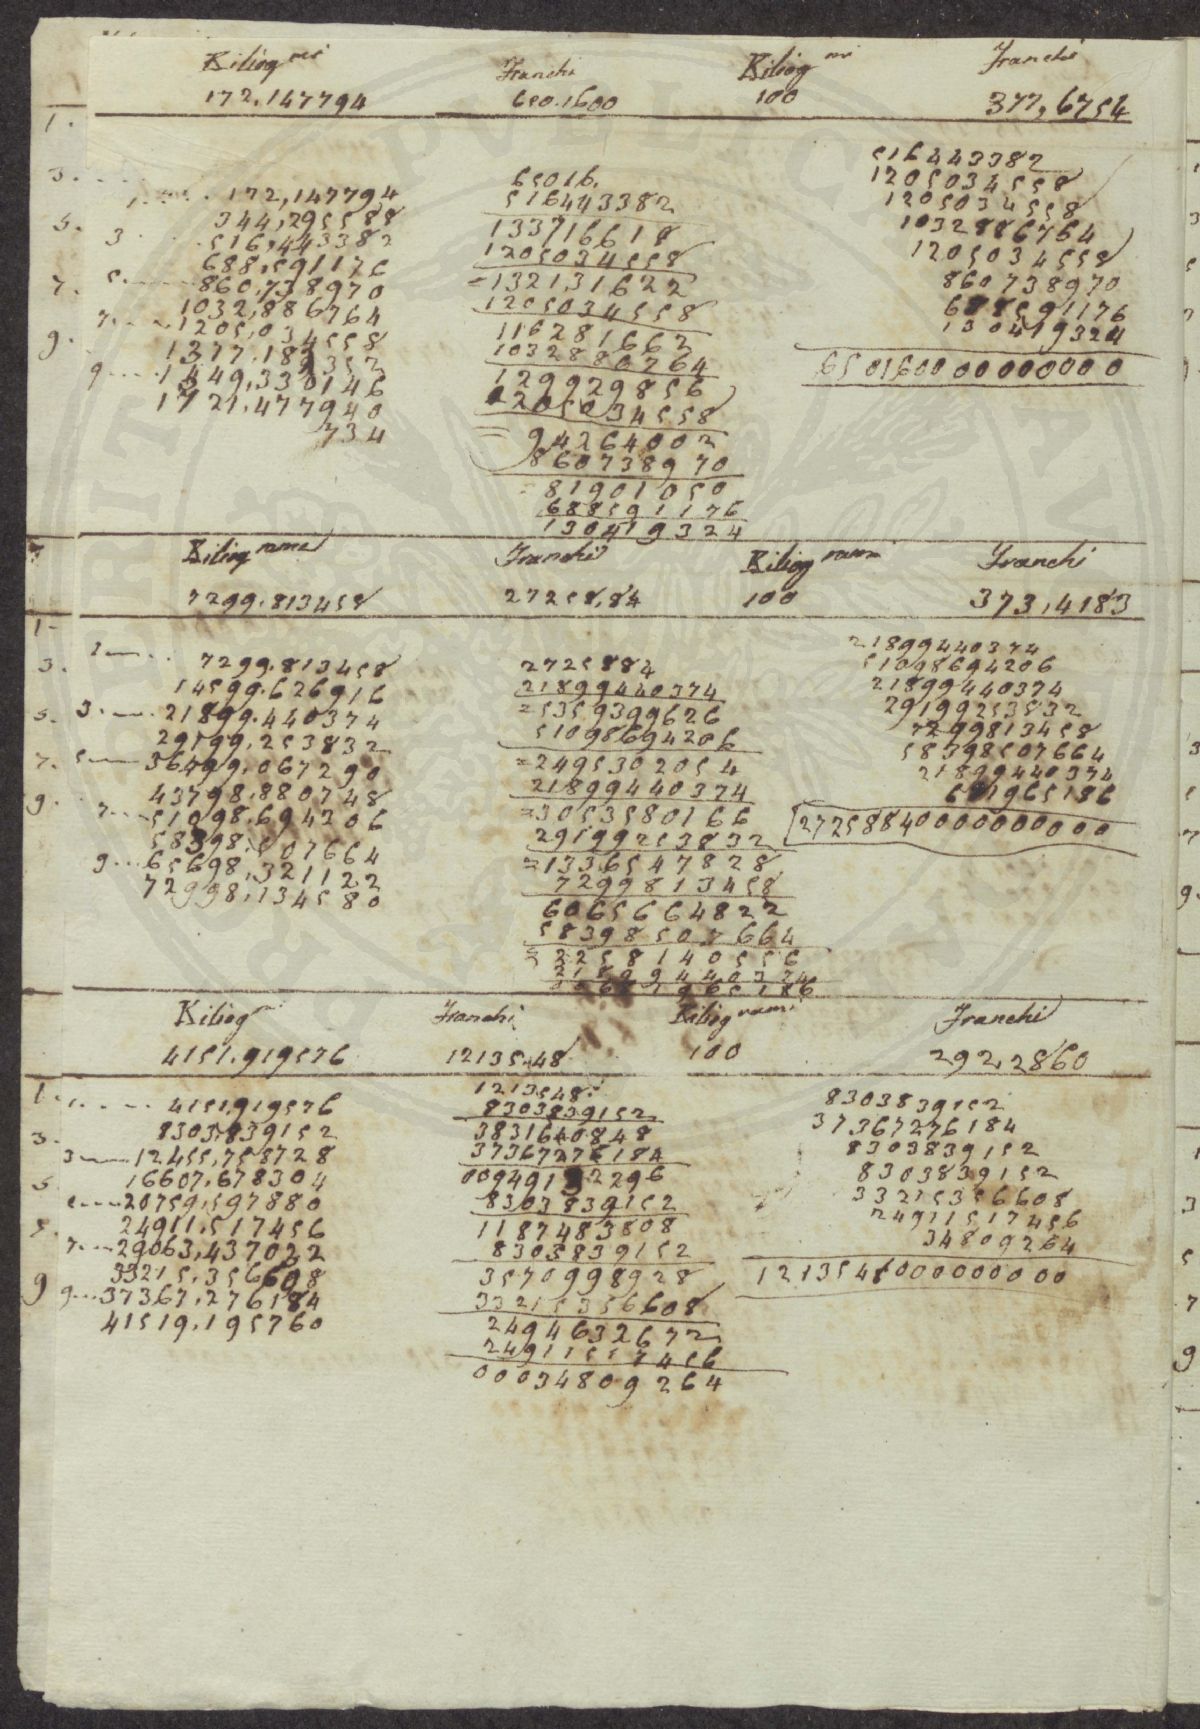 Kiliogmi Franchi Kiliogmi Franchi
172.147794 650.1600 100 377,6754
1.
3.
5.
7.
9.
1 172,147794
344,295588
3 516,443382
688,591176
5 860,738970
1032,886764
7 1205,034558
1377.182352
9 1549,330146
1721.477940
734
65016.
516443382
133716618
1205034558
=132131622
1205034558
116281662
1032886764
129929856
1205034558
= 94264002
860738970
= 81901050
688591176
130419324
516443382
1205034558
1205034558
1032886764
1205034558
860738970
688591176
130419324
65016000000000
Kiliogrami Franchi Kiliogrami Franchi
7299.813458 27258,84 100 373,4183
1
3.
5.
7.
9.
1 7299.813458
14599.626916
3. 21899.440374
29199.253832
5 36499.067290
43798.880748
7 51098.694206
58398.507664
9 65698,321122
72998,134580
2725884
21899440374
=5359399626
51098694206
=2495302054
21899440374
=3053580166
29199253832
=1336547828
7299813458
6065664822
58398507664
=2258140556
21899440374
681965186
21899440374
51098694206
21899440374
29199253832
7299813458
58398507664
21899440374
681965186
27258840000000000
Kiliog Franchi Kiliogrami Franchi
4151.919576 12135.48 100 292,2860
1.
3.
5
7.
9
1 4151.919576
8303,839152
3 12455,758728
16607,678304
5 20759,597880
24911,517456
7 29063,437032
33215,356608
9 37367,276184
41519,195760
1213548.
8303839152
3831640848
37367276184
00949132296
8303839152
1187483808
8303839152
3570998928
33215356608
2494632672
24911517456
00034809264
8303839152
37367276184
8303839152
8303839152
33215356608
24911517456
34809264
1213548000000000